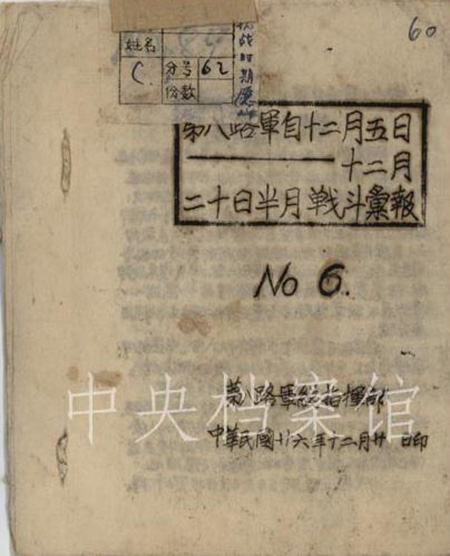 60
姓名
C
分号
62
份数
抗战时期
第八路軍自十二月五日
——十二月
二十日半月戦斗彙報
No 6.
第八路軍總指揮部
中華民國廿六年十二月廿一日印
中央档案馆